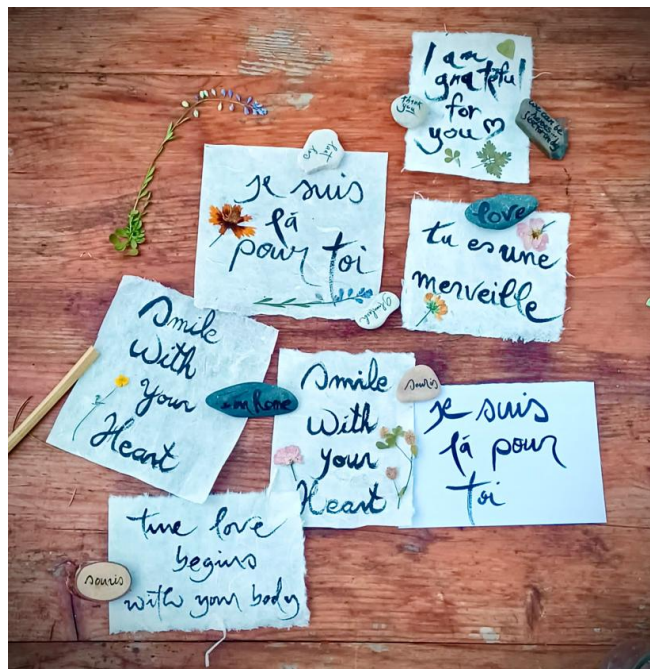 I am
grateful
for
you
Thank
you
love
je suis
là
pour toi
tu es une
merveille
Smile
With
Your
Heart
home
Smile
With
your
Heart
souris
je suis
là pour
toi
true love
begins
with your body
souris